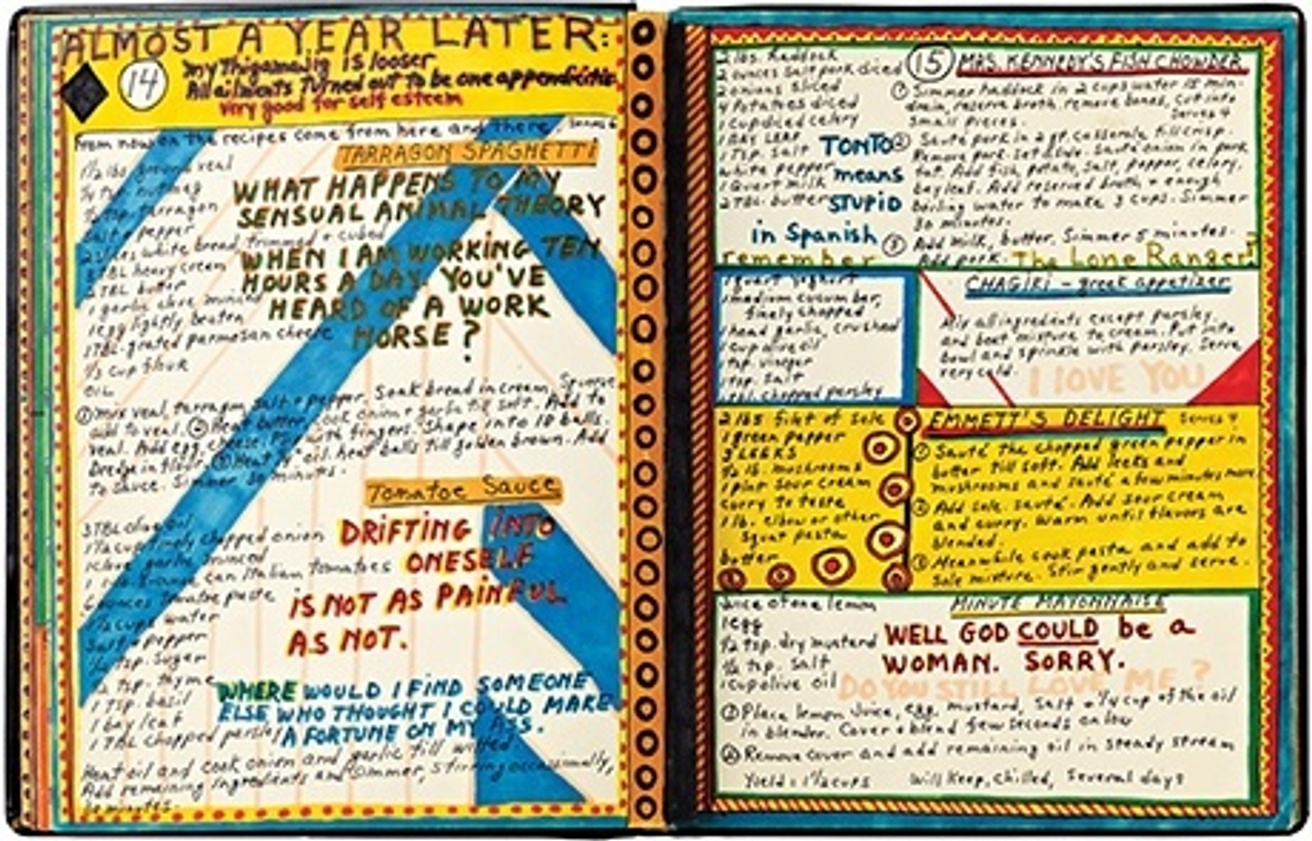 ALMOST A YEAR LATER:
14
my Thigamadig is looser
All ailments Turned out to be one appendicitis
very good for self esteem
From now on the recipes come from here and there, Serves 6
TARRAGON SPAGHETTI
1½ lbs ground veal
nutmeg
½ tsp. tarragon
Salt + pepper
2 slices white bread, trimmed + cubed
3 TBL heavy cream
2 TBL butter
1 garlic clove minced
1 egg lightly beaten
1 TBL. grated parmesan cheese
⅓ cup flour
OIL
WHAT HAPPENS TO MY
SENSUAL ANIMAL THEORY
WHEN I AM WORKING TEN
HOURS A DAY. YOU'VE
HEARD OF A WORK
HORSE?
① Mix veal, tarragon, salt + pepper. Soak bread in cream, Squeeze
add to veal. ② Heat butter, cook onion + garlic till soft. Add to
veal. Add egg, cheese. Mix with fingers. Shape into 18 balls.
Dredge in flour. ③ Heat ¼" oil. heat balls till golden brown. Add
to sauce. Simmer 30 minutes.
Tomatoe Sauce
3 TBL olive oil
1½ cup finely chopped onion
1 clove garlic minced
1 can Italian tomatoes
6 ounces tomatoe paste
½ cups water
Salt + pepper
½ tsp. sugar
½ tsp. thyme
1 tsp. basil
1 bay leaf
1 TBL chopped parsley
DRIFTING INTO
ONESELF
IS NOT AS PAINFUL
AS NOT.
WHERE WOULD I FIND SOMEONE
ELSE WHO THOUGHT I COULD MAKE
A FORTUNE ON MY ASS.
Heat oil and cook onion and garlic till wilted.
Add remaining ingredients and simmer, stirring occasionally,
30 minutes.
2 lbs. haddock
2 ounces salt pork diced
2 onions sliced
4 potatoes diced
1 cup diced celery
1 BAY LEAF
1 Tsp. salt
white pepper
1 Quart milk
2 TBL. butter
TONTO
means
STUPID
in Spanish
remember The Lone Ranger?
15 MRS. KENNEDY'S FISH CHOWDER
① Simmer haddock in 2 cups water 15 min-
drain, reserve broth, remove bones, cut into
small pieces. Serves 4
② Sauté pork in 2 qt. casserole till crisp.
Remove pork. Set aside. Sauté onion in pork
fat. Add fish, potato, salt, pepper, celery,
bay leaf. Add reserved broth + enough
boiling water to make 3 cups. Simmer
30 minutes.
③ Add milk, butter. Simmer 5 minutes.
Add pork.
1 quart yoghurt
1 medium cucumber,
finely chopped
1 head garlic, crushed
1 cup olive oil
1 tsp. vinegar
1 tsp. salt
TBL. chopped parsley
CHAGIKI - greek appetizer
Mix all ingredients except parsley,
and beat mixture to cream. Put into
bowl and sprinkle with parsley. Serve
very cold.
I LOVE YOU
2 lbs filet of sole
1 green pepper
3 LEEKS
½ lb. mushrooms
1 pint sour cream
curry to taste
1 lb. elbow or other
squat pasta
butter
EMMETT'S DELIGHT Serves 4
① Sauté the chopped green pepper in
butter till soft. Add leeks and
mushrooms and sauté a few minutes more
② Add sole. sauté. Add sour cream
and curry. Warm until flavors are
blended.
③ Meanwhile cook pasta and add to
sole mixture. Stir gently and serve.
MINUTE MAYONNAISE
Juice of one lemon
1 egg
½ tsp. dry mustard
½ tsp. salt
1 cup olive oil
WELL GOD COULD be a
WOMAN. SORRY.
DO YOU STILL LOVE ME?
① Place lemon juice, egg, mustard, salt + ¼ cup of the oil
in blender. Cover + blend few seconds on low
② Remove cover and add remaining oil in steady stream
Yield: 1½ cups Will keep, chilled, several days